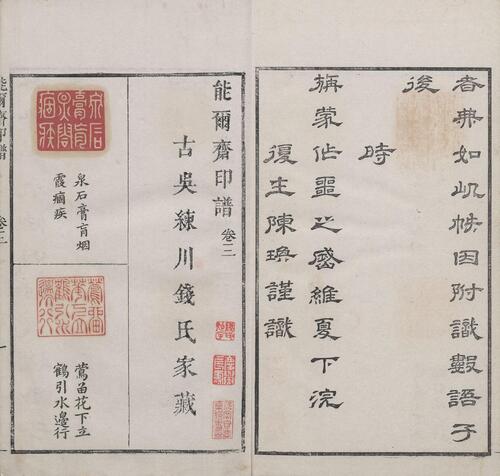 者弗如此帙因附識數語于
後
時
旃蒙作噩之歲維夏下浣
復生陳謹識
能爾齋印譜 卷三
古吳練川錢氏家藏
泉石膏肓烟霞痼疾
泉石膏肓烟
霞痼疾
鶯留花下立鶴引水邊行
鶯留花下立
鶴引水邊行
能爾齋印譜 卷三 一